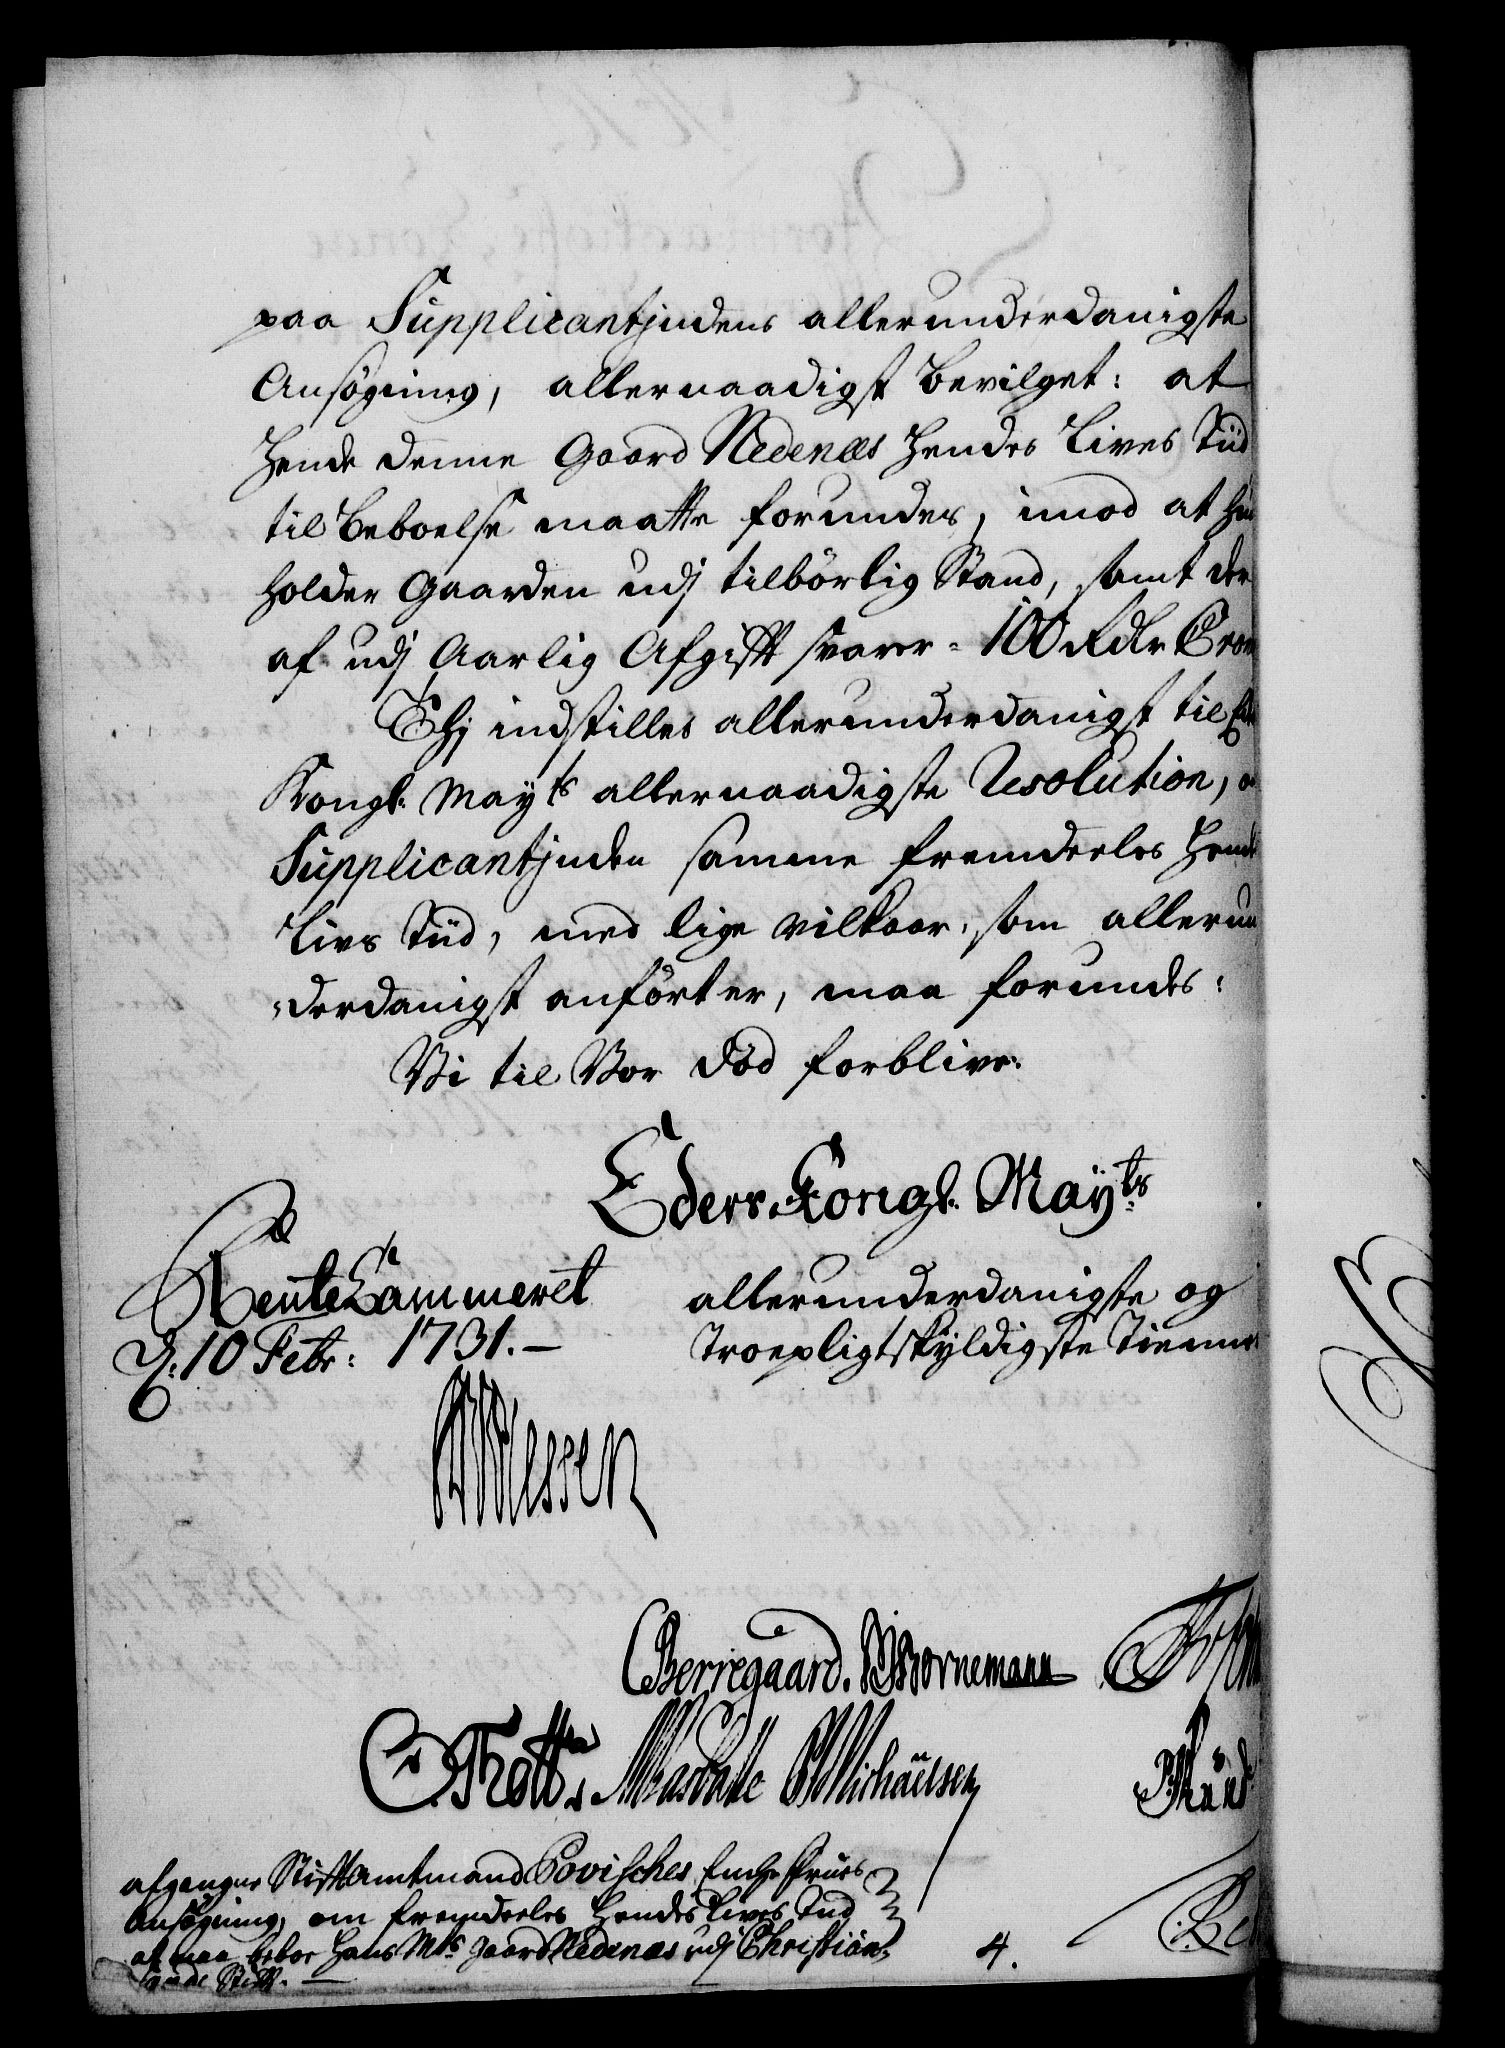 paa Supplicantjndens allerunderdanigste
Ansögning, allernaadigst bevilget: at
Hende denne Gaard Nedenæs Hendes Lives Tiid
til Beboelse maatte forundes, imod at hun
holder Gaarden udj tilbörlig Stand, samt der
af udj Aarlig Afgifft svarer = 100 Rdlr Cron
Thj indstilles allerunderdanigst til
Kongl. Mayts allernaadigste Resolution,
Supplicantjnden samme fremdeeles Hendes
Livs Tiid, med lige vilkaar, som allerun
=derdanigst anfört er, maa forundes:
Vi til Vor död forblive.
Eders Kongl. Mayts
RenteCammeret
d. 10 Febr: 1731. —
allerunderdanigste og
Troepligtskyldigste Tienner
Wiessen
CBerregaard. Bornemann
C. Thott. Michaelsen
afgangne Stiftamtmand Povisches Enche Frues
Ansögning, om fremdeeles Hendes Lives Tiid
at maa beboe Hans Mts gaard Nedenæs udj Christian=
sands Stift. —
4.